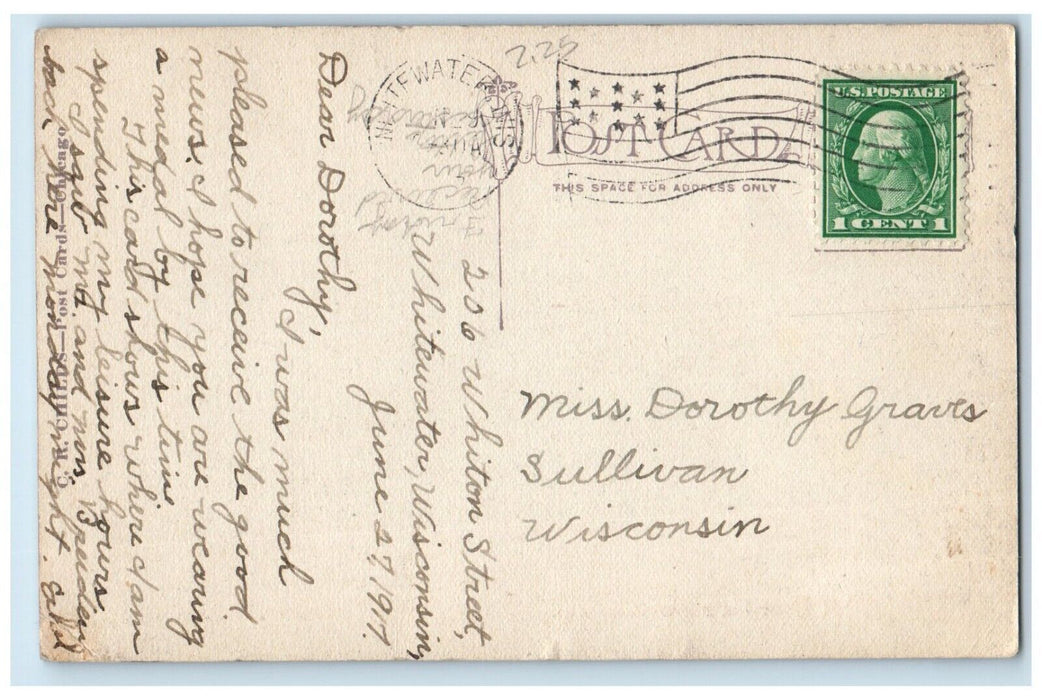 206 Whiton Street,
Whitewater, Wisconsin,
June 27, 1917.
Dear Dorothy,
I was much
pleased to receive the good
news. I hope you are wearing
a medal by this time
This card shows where I am
spending my leisure hours
I saw Mr. and Mrs.
back here monday night.
C. R. CHILDS—Post Cards—Chicago
2.25
WHITEWATER WIS
POST CARD
THIS SPACE FOR ADDRESS ONLY
U.S. POSTAGE
1 CENT 1
Miss. Dorothy Graves
Sullivan
Wisconsin